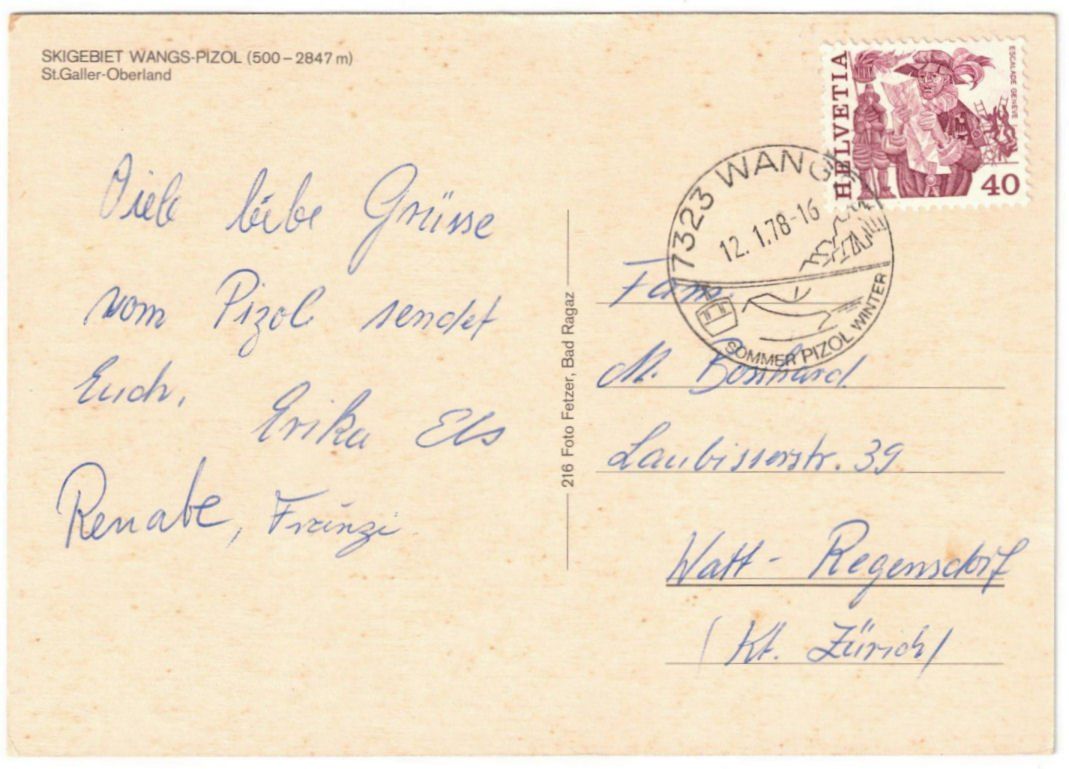 SKIGEBIET WANGS-PIZOL (500–2847 m)
St.Galler-Oberland
HELVETIA
ESCALADE GENÈVE
40
7323 WANGS
12.1.78-16
SOMMER PIZOL WINTER
Viele liebe Grüsse
vom Pizol sendet
Euch,
Erika Els
Renate, Fränzi
216 Foto Fetzer, Bad Ragaz
Fam.
M. Bosshard
Laubisserstr. 39
Watt - Regensdorf
(Kt. Zürich)